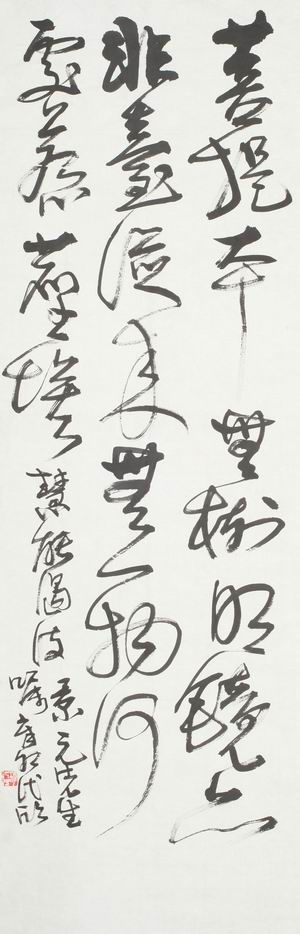 菩提本無樹明鏡亦
非臺從來無一物何
處著塵埃
慧能偈語 景元先生
囑